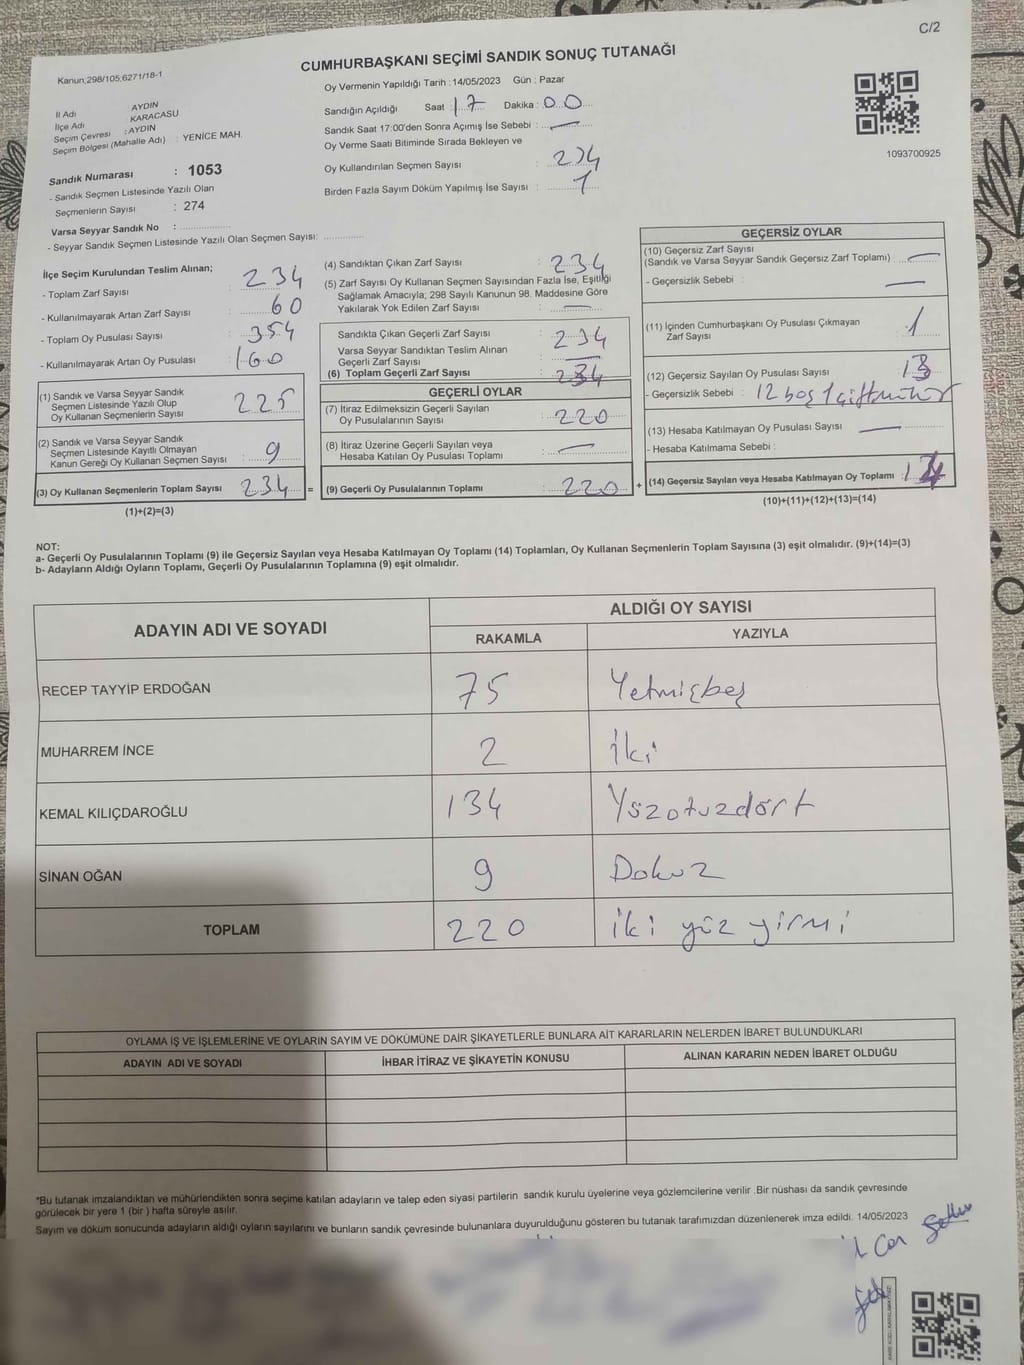 C/2
CUMHURBAŞKANI SEÇİMİ SANDIK SONUÇ TUTANAĞI
Kanun;298/105,6271/18-1
İl Adı AYDIN
İlçe Adı KARACASU
Seçim Çevresi : AYDIN
Seçim Bölgesi (Mahalle Adı) : YENİCE MAH.
Sandık Numarası : 1053
- Sandık Seçmen Listesinde Yazılı Olan
Seçmenlerin Sayısı : 274
Varsa Seyyar Sandık No :
- Seyyar Sandık Seçmen Listesinde Yazılı Olan Seçmen Sayısı:
Oy Vermenin Yapıldığı Tarih : 14/05/2023 Gün : Pazar
Sandığın Açıldığı Saat : 17 Dakika : 00
Sandık Saat 17:00'den Sonra Açılmış İse Sebebi : —
Oy Verme Saati Bitiminde Sırada Bekleyen ve
Oy Kullandırılan Seçmen Sayısı : 234
Birden Fazla Sayım Döküm Yapılmış İse Sayısı : 1
1093700925
İlçe Seçim Kurulundan Teslim Alınan;
- Toplam Zarf Sayısı : 234
- Kullanılmayarak Artan Zarf Sayısı : 60
- Toplam Oy Pusulası Sayısı : 354
- Kullanılmayarak Artan Oy Pusulası : 160
(1) Sandık ve Varsa Seyyar Sandık
Seçmen Listesinde Yazılı Olup
Oy Kullanan Seçmenlerin Sayısı 225
(2) Sandık ve Varsa Seyyar Sandık
Seçmen Listesinde Kayıtlı Olmayan
Kanun Gereği Oy Kullanan Seçmen Sayısı : 9
(3) Oy Kullanan Seçmenlerin Toplam Sayısı 234 =
(1)+(2)=(3)
(4) Sandıktan Çıkan Zarf Sayısı : 234
(5) Zarf Sayısı Oy Kullanan Seçmen Sayısından Fazla İse, Eşitliği
Sağlamak Amacıyla; 298 Sayılı Kanunun 98. Maddesine Göre
Yakılarak Yok Edilen Zarf Sayısı : —
Sandıkta Çıkan Geçerli Zarf Sayısı : 234
Varsa Seyyar Sandıktan Teslim Alınan
Geçerli Zarf Sayısı : —
(6) Toplam Geçerli Zarf Sayısı : 234
GEÇERLİ OYLAR
(7) İtiraz Edilmeksizin Geçerli Sayılan
Oy Pusulalarının Sayısı : 220
(8) İtiraz Üzerine Geçerli Sayılan veya
Hesaba Katılan Oy Pusulası Toplamı : —
(9) Geçerli Oy Pusulalarının Toplamı : 220 +
GEÇERSİZ OYLAR
(10) Geçersiz Zarf Sayısı
(Sandık ve Varsa Seyyar Sandık Geçersiz Zarf Toplamı) : —
- Geçersizlik Sebebi : —
(11) İçinden Cumhurbaşkanı Oy Pusulası Çıkmayan
Zarf Sayısı : 1
(12) Geçersiz Sayılan Oy Pusulası Sayısı : 13
- Geçersizlik Sebebi : 12 boş 1 çift mühür
(13) Hesaba Katılmayan Oy Pusulası Sayısı : —
- Hesaba Katılmama Sebebi :
(14) Geçersiz Sayılan veya Hesaba Katılmayan Oy Toplamı : 14
(10)+(11)+(12)+(13)=(14)
NOT:
a- Geçerli Oy Pusulalarının Toplamı (9) ile Geçersiz Sayılan veya Hesaba Katılmayan Oy Toplamı (14) Toplamları, Oy Kullanan Seçmenlerin Toplam Sayısına (3) eşit olmalıdır. (9)+(14)=(3)
b- Adayların Aldığı Oyların Toplamı, Geçerli Oy Pusulalarının Toplamına (9) eşit olmalıdır.
ADAYIN ADI VE SOYADI ALDIĞI OY SAYISI
RAKAMLA YAZIYLA
RECEP TAYYİP ERDOĞAN 75 Yetmişbeş
MUHARREM İNCE 2 İki
KEMAL KILIÇDAROĞLU 134 Yüzotuzdört
SİNAN OĞAN 9 Dokuz
TOPLAM 220 iki yüz yirmi
OYLAMA İŞ VE İŞLEMLERİNE VE OYLARIN SAYIM VE DÖKÜMÜNE DAİR ŞİKAYETLERLE BUNLARA AİT KARARLARIN NELERDEN İBARET BULUNDUKLARI
ADAYIN ADI VE SOYADI İHBAR İTİRAZ VE ŞİKAYETİN KONUSU ALINAN KARARIN NEDEN İBARET OLDUĞU
*Bu tutanak imzalandıktan ve mühürlendikten sonra seçime katılan adayların ve talep eden siyasi partilerin sandık kurulu üyelerine veya gözlemcilerine verilir .Bir nüshası da sandık çevresinde
görülecek bir yere 1 (bir ) hafta süreyle asılır.
Sayım ve döküm sonucunda adayların aldığı oyların sayılarını ve bunların sandık çevresinde bulunanlara duyurulduğunu gösteren bu tutanak tarafımızdan düzenlenerek imza edildi. 14/05/2023